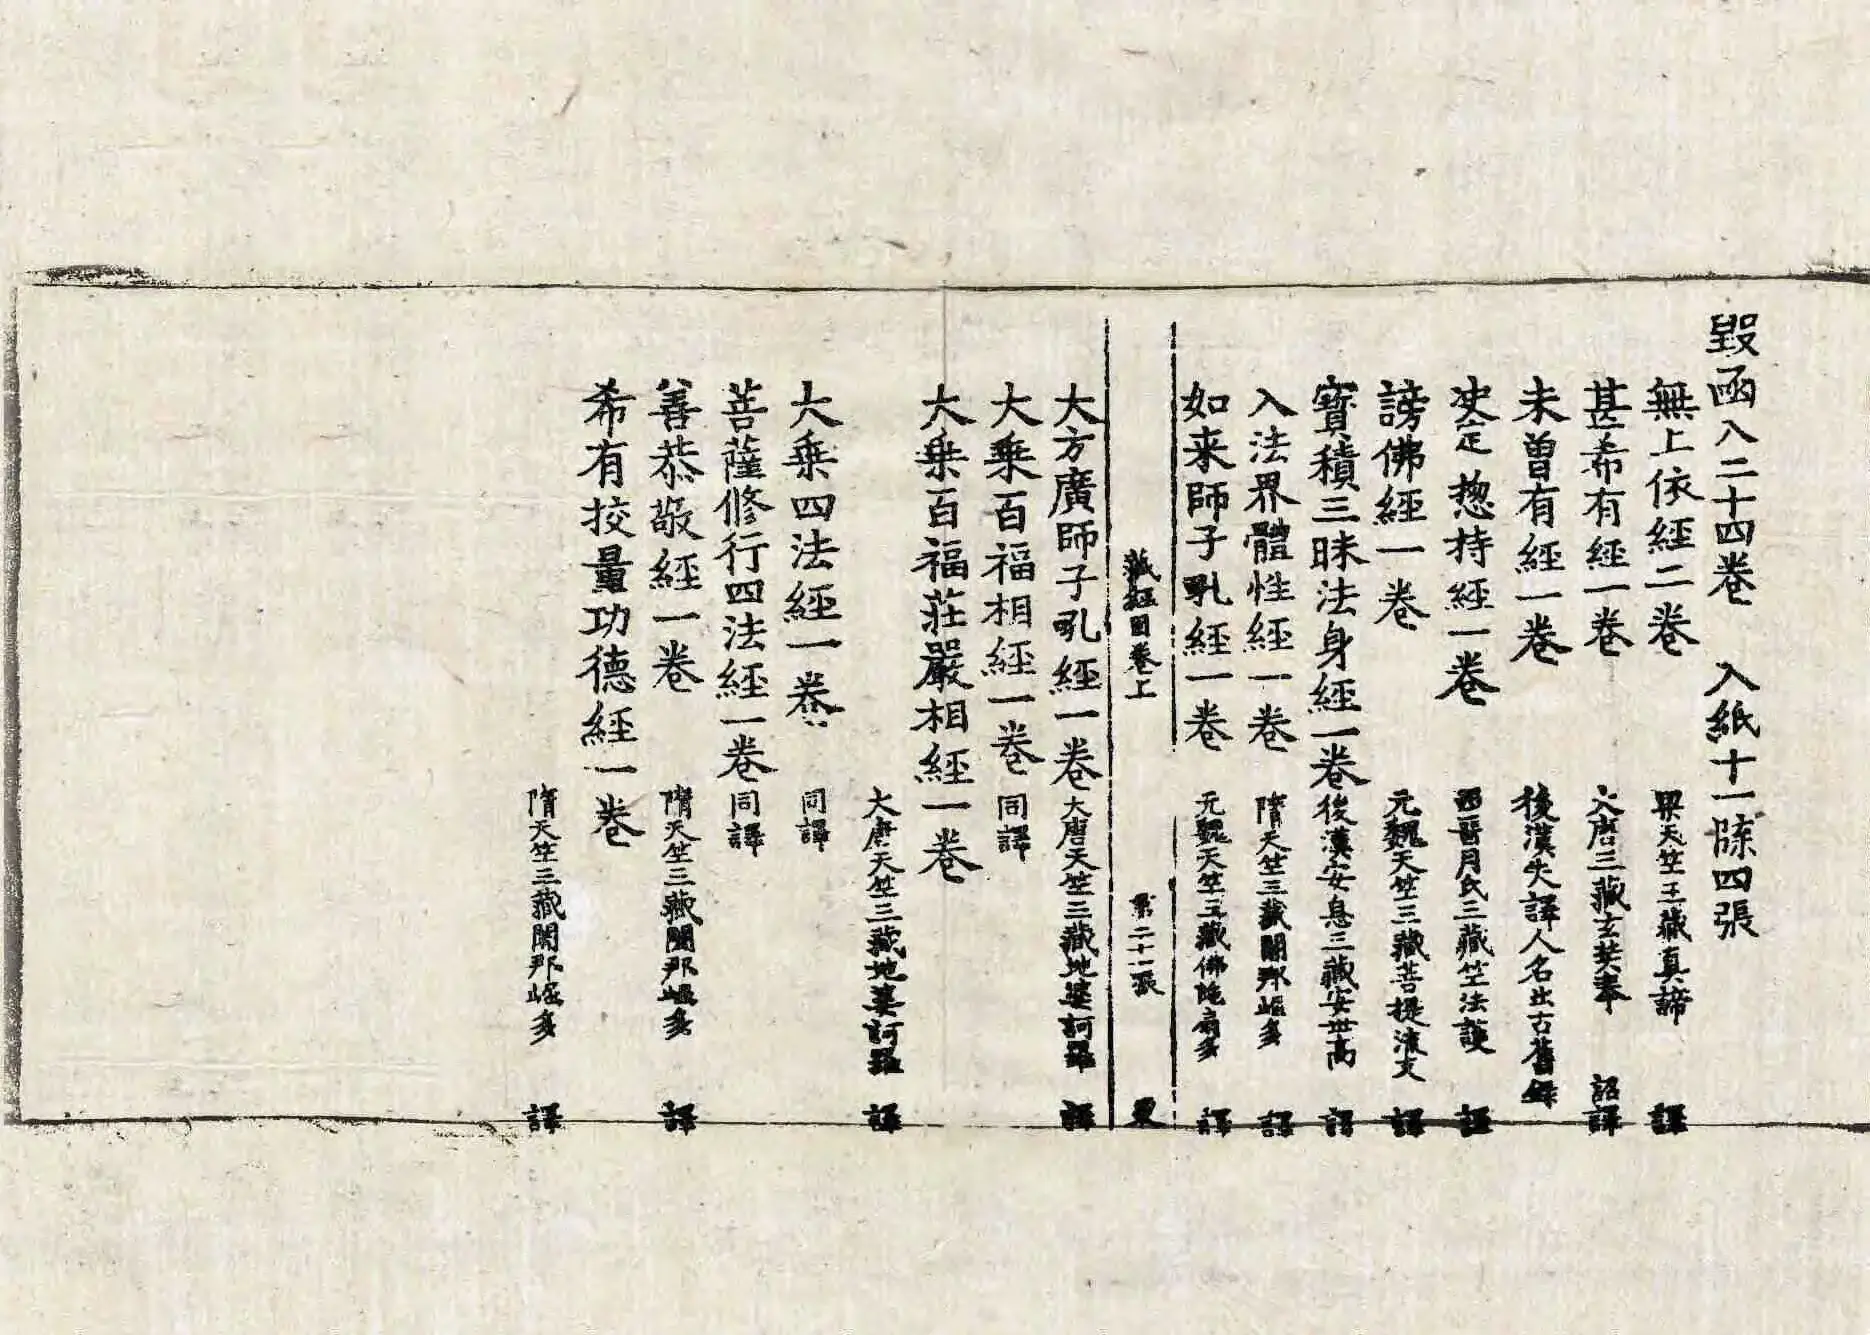 毀函入二十四卷 入紙十一牒四張
無上依經二卷 梁天竺三藏真諦 譯
甚希有經一卷 大唐三藏玄奘奉 詔譯
未曾有經一卷 後漢失譯人名出古舊錄
决定揔持經一卷 西晋月氏三藏竺法護 譯
謗佛經一卷 元魏天竺三藏菩提流支 譯
寳積三昧法身經一卷 後漢安息三藏安世高 譯
入法界體性經一卷 隋天竺三藏闍那崛多 譯
如来師子吼經一卷 元魏天竺三藏佛陁扇多 譯
藏經目卷上 第二十一張
大方廣師子吼經一卷 大唐天竺三藏地婆訶羅 譯
大乗百福相經一卷 同譯
大乗百福莊嚴相經一卷
大唐天竺三藏地婆訶羅 譯
大乗四法經一卷 同譯
菩薩修行四法經一卷 同譯
善恭敬經一卷 隋天竺三藏闍那崛多 譯
希有挍量功德經一卷
隋天竺三藏闍那崛多 譯